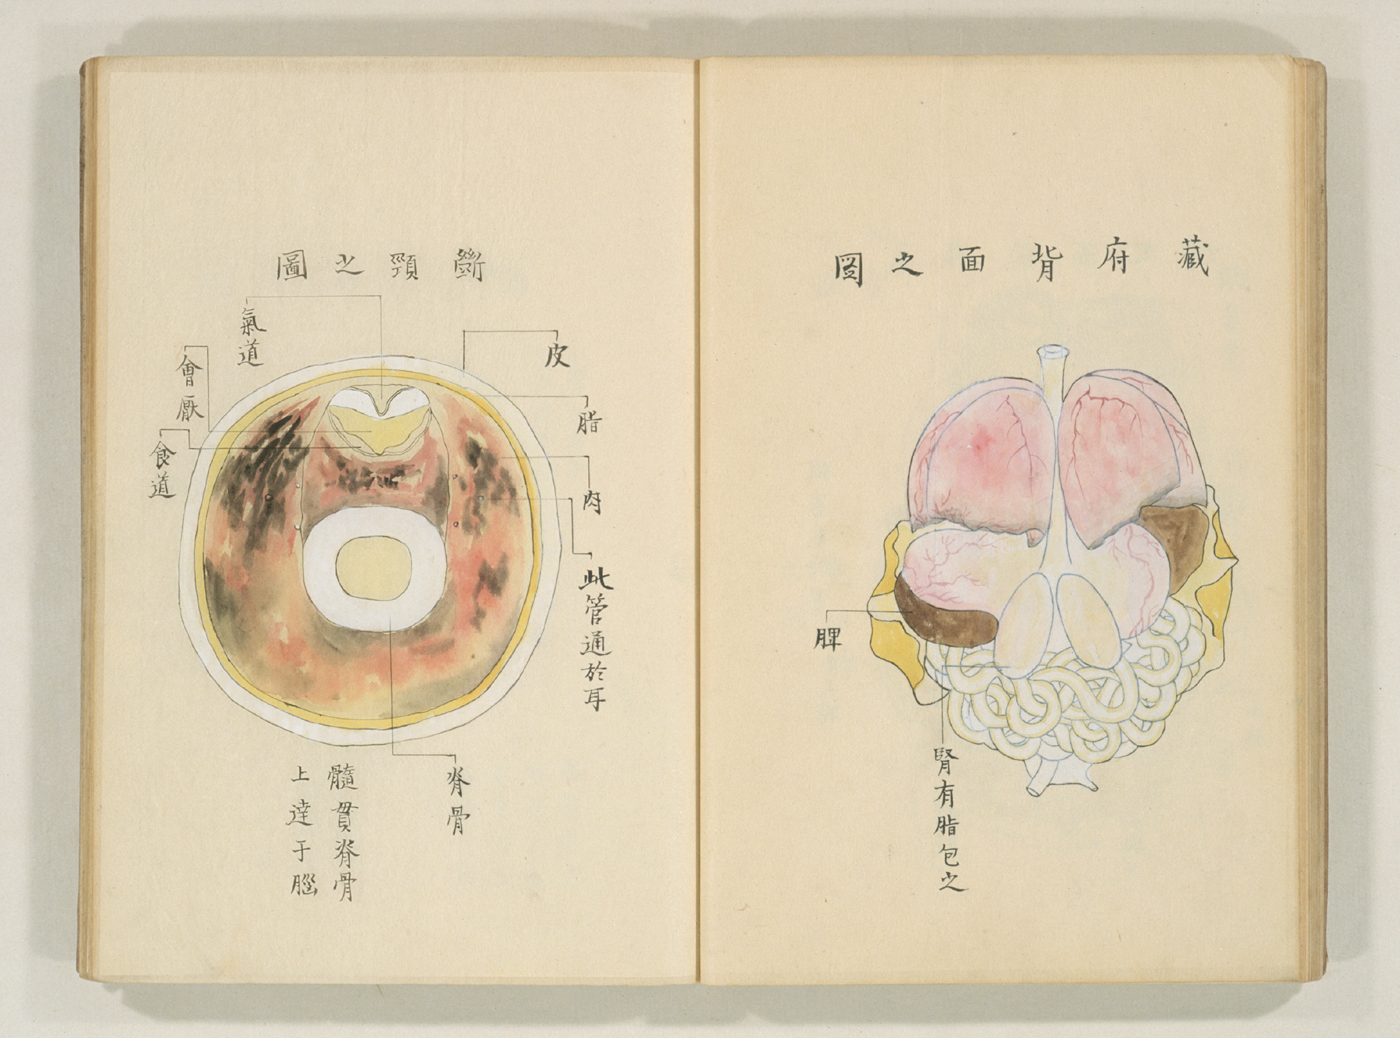 藏府背面之圖
脾
腎有脂包之
斷頸之圖
皮
脂
肉
此管通於耳
脊骨
氣道
會厭
食道
髓貫脊骨
上達于腦